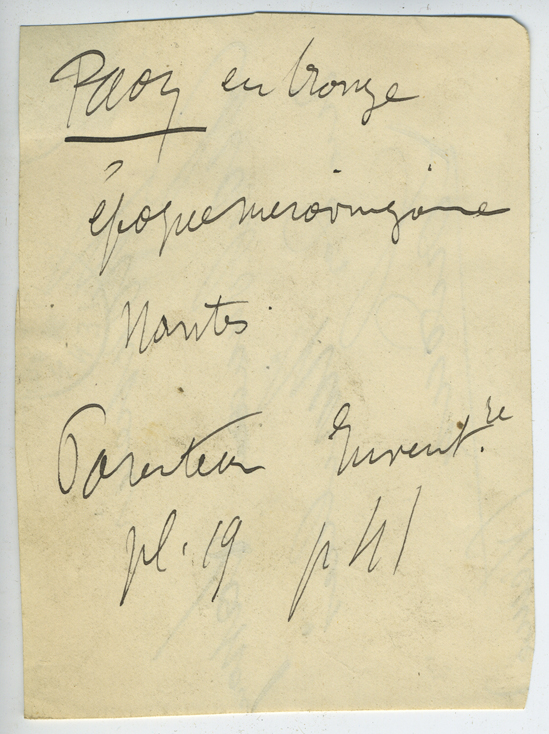 Paon en bronze
époque merovingienne
Nantes
Parenteau Invent.re
pl. 19 p 41